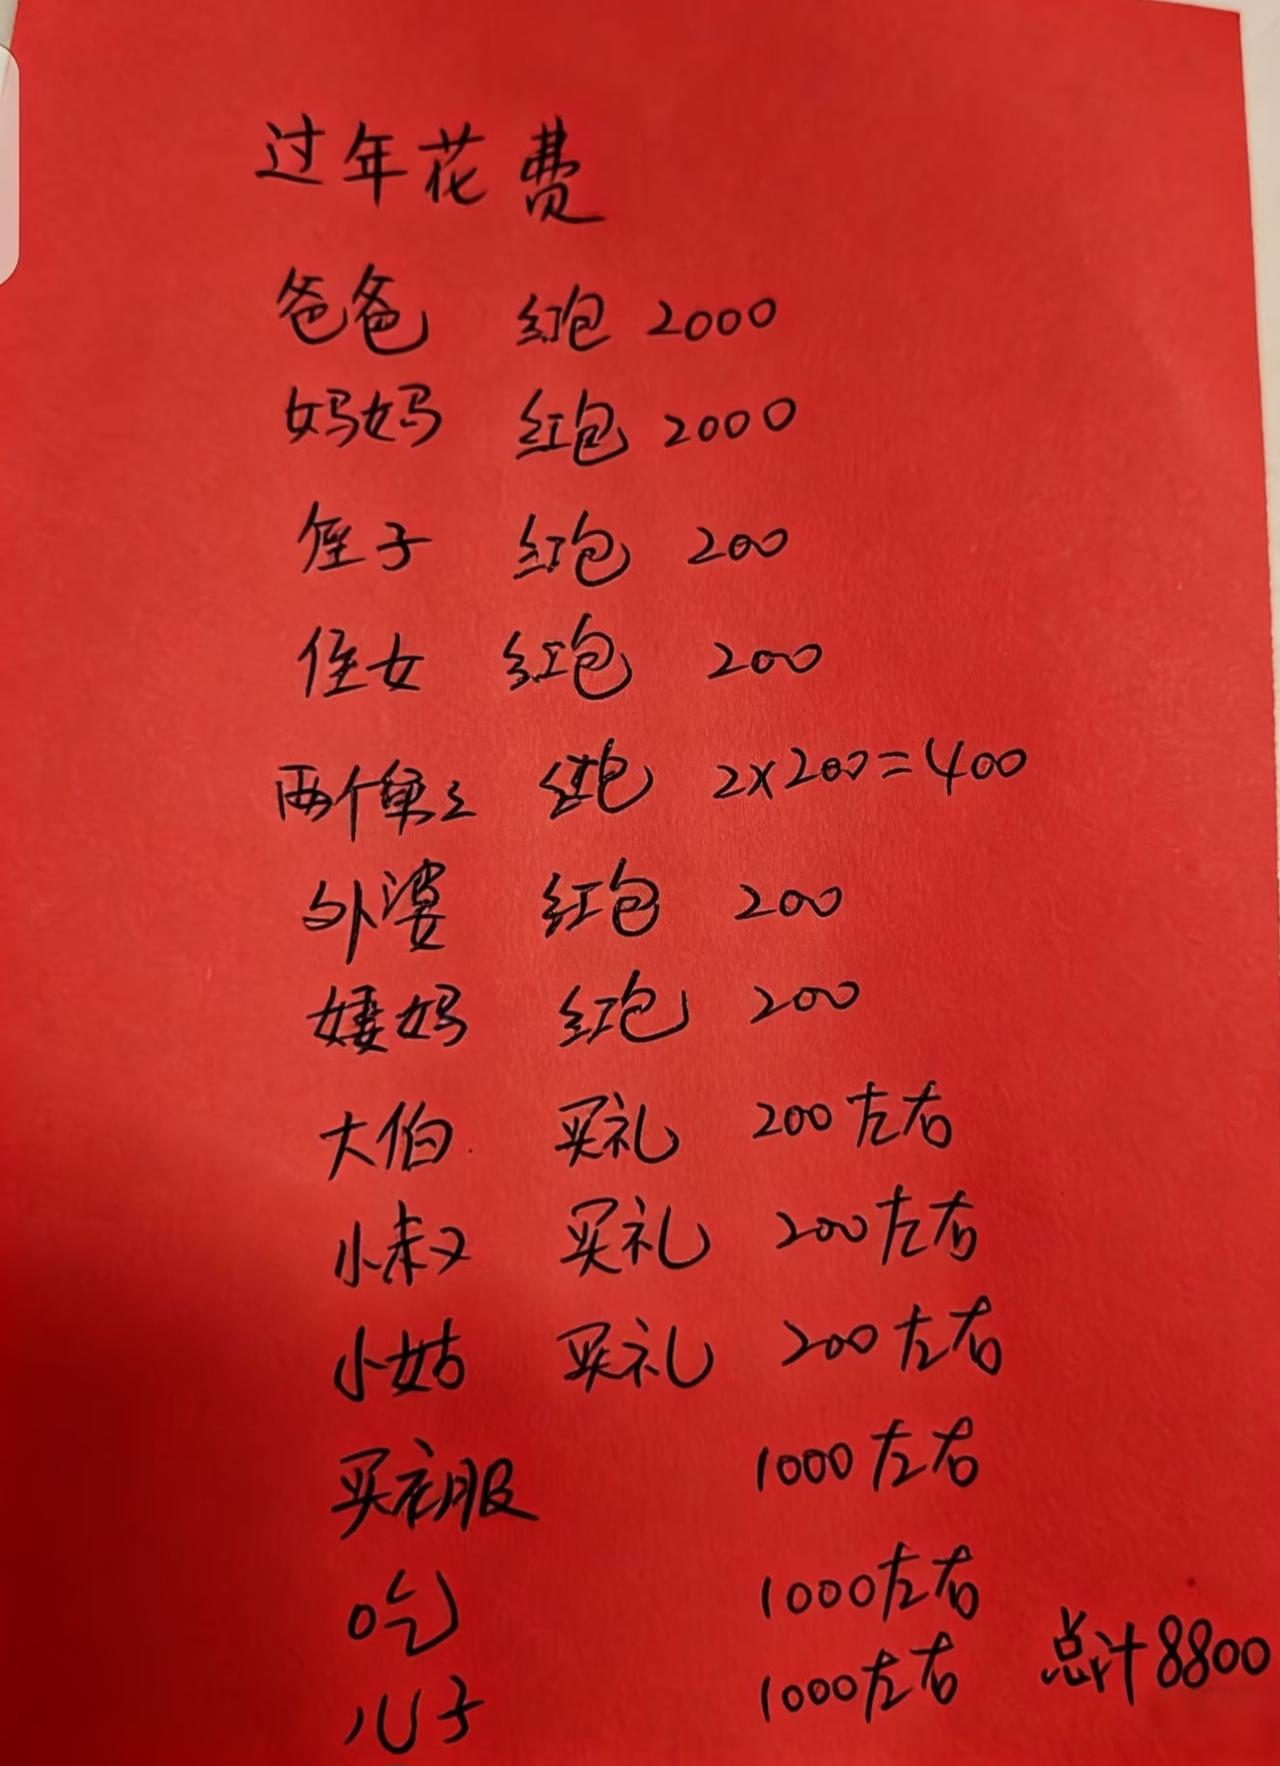 过年花费
爸爸 红包 2000
妈妈 红包 2000
侄子 红包 200
侄女 红包 200
两个 红包 2×200=400
外婆 红包 200
婶妈 红包 200
大伯 买礼 200左右
小叔 买礼 200左右
小姑 买礼 200左右
买衣服 1000左右
吃 1000左右
儿子 1000左右 总计8800